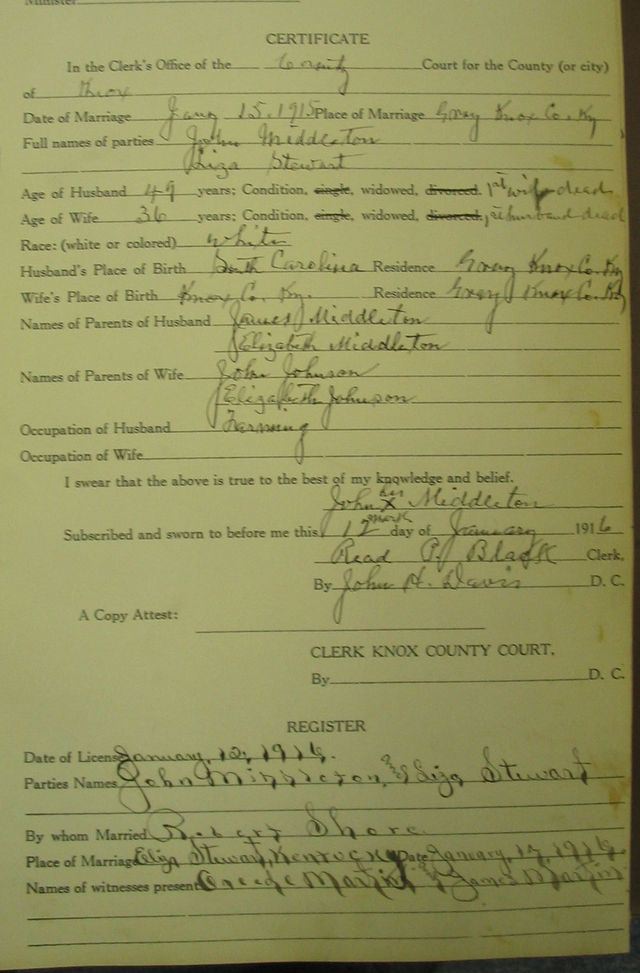 Minister
CERTIFICATE
In the Clerk's Office of the County Court for the County (or city)
of Knox
Date of Marriage Jany 15, 1915 Place of Marriage Gray Knox Co. Ky
Full names of parties John Middleton
Liza Stewart
Age of Husband 49 years; Condition, single, widowed, divorced. 1st wife dead
Age of Wife 36 years; Condition, single, widowed, divorced, 1st husband dead
Race: (white or colored) white
Husband's Place of Birth South Carolina Residence Gray Knox Co. Ky
Wife's Place of Birth Knox Co. Ky. Residence Gray Knox Co. Ky
Names of Parents of Husband James Middleton
Elizabeth Middleton
Names of Parents of Wife John Johnson
Elizabeth Johnson
Occupation of Husband Farming
Occupation of Wife
I swear that the above is true to the best of my knowledge and belief.
his
John X Middleton
mark
Subscribed and sworn to before me this 12 day of January 1916
Read P. Black Clerk.
By John H. Davis D. C.
A Copy Attest:
CLERK KNOX COUNTY COURT.
By D. C.
REGISTER
Date of License January, 12, 1916.
Parties Names John Middleton, & Liza Stewart
By whom Married Robert Shore
Place of Marriage Eliza Stewart, Kentucky Date January, 17, 1916
Names of witnesses present Martin & James Martin